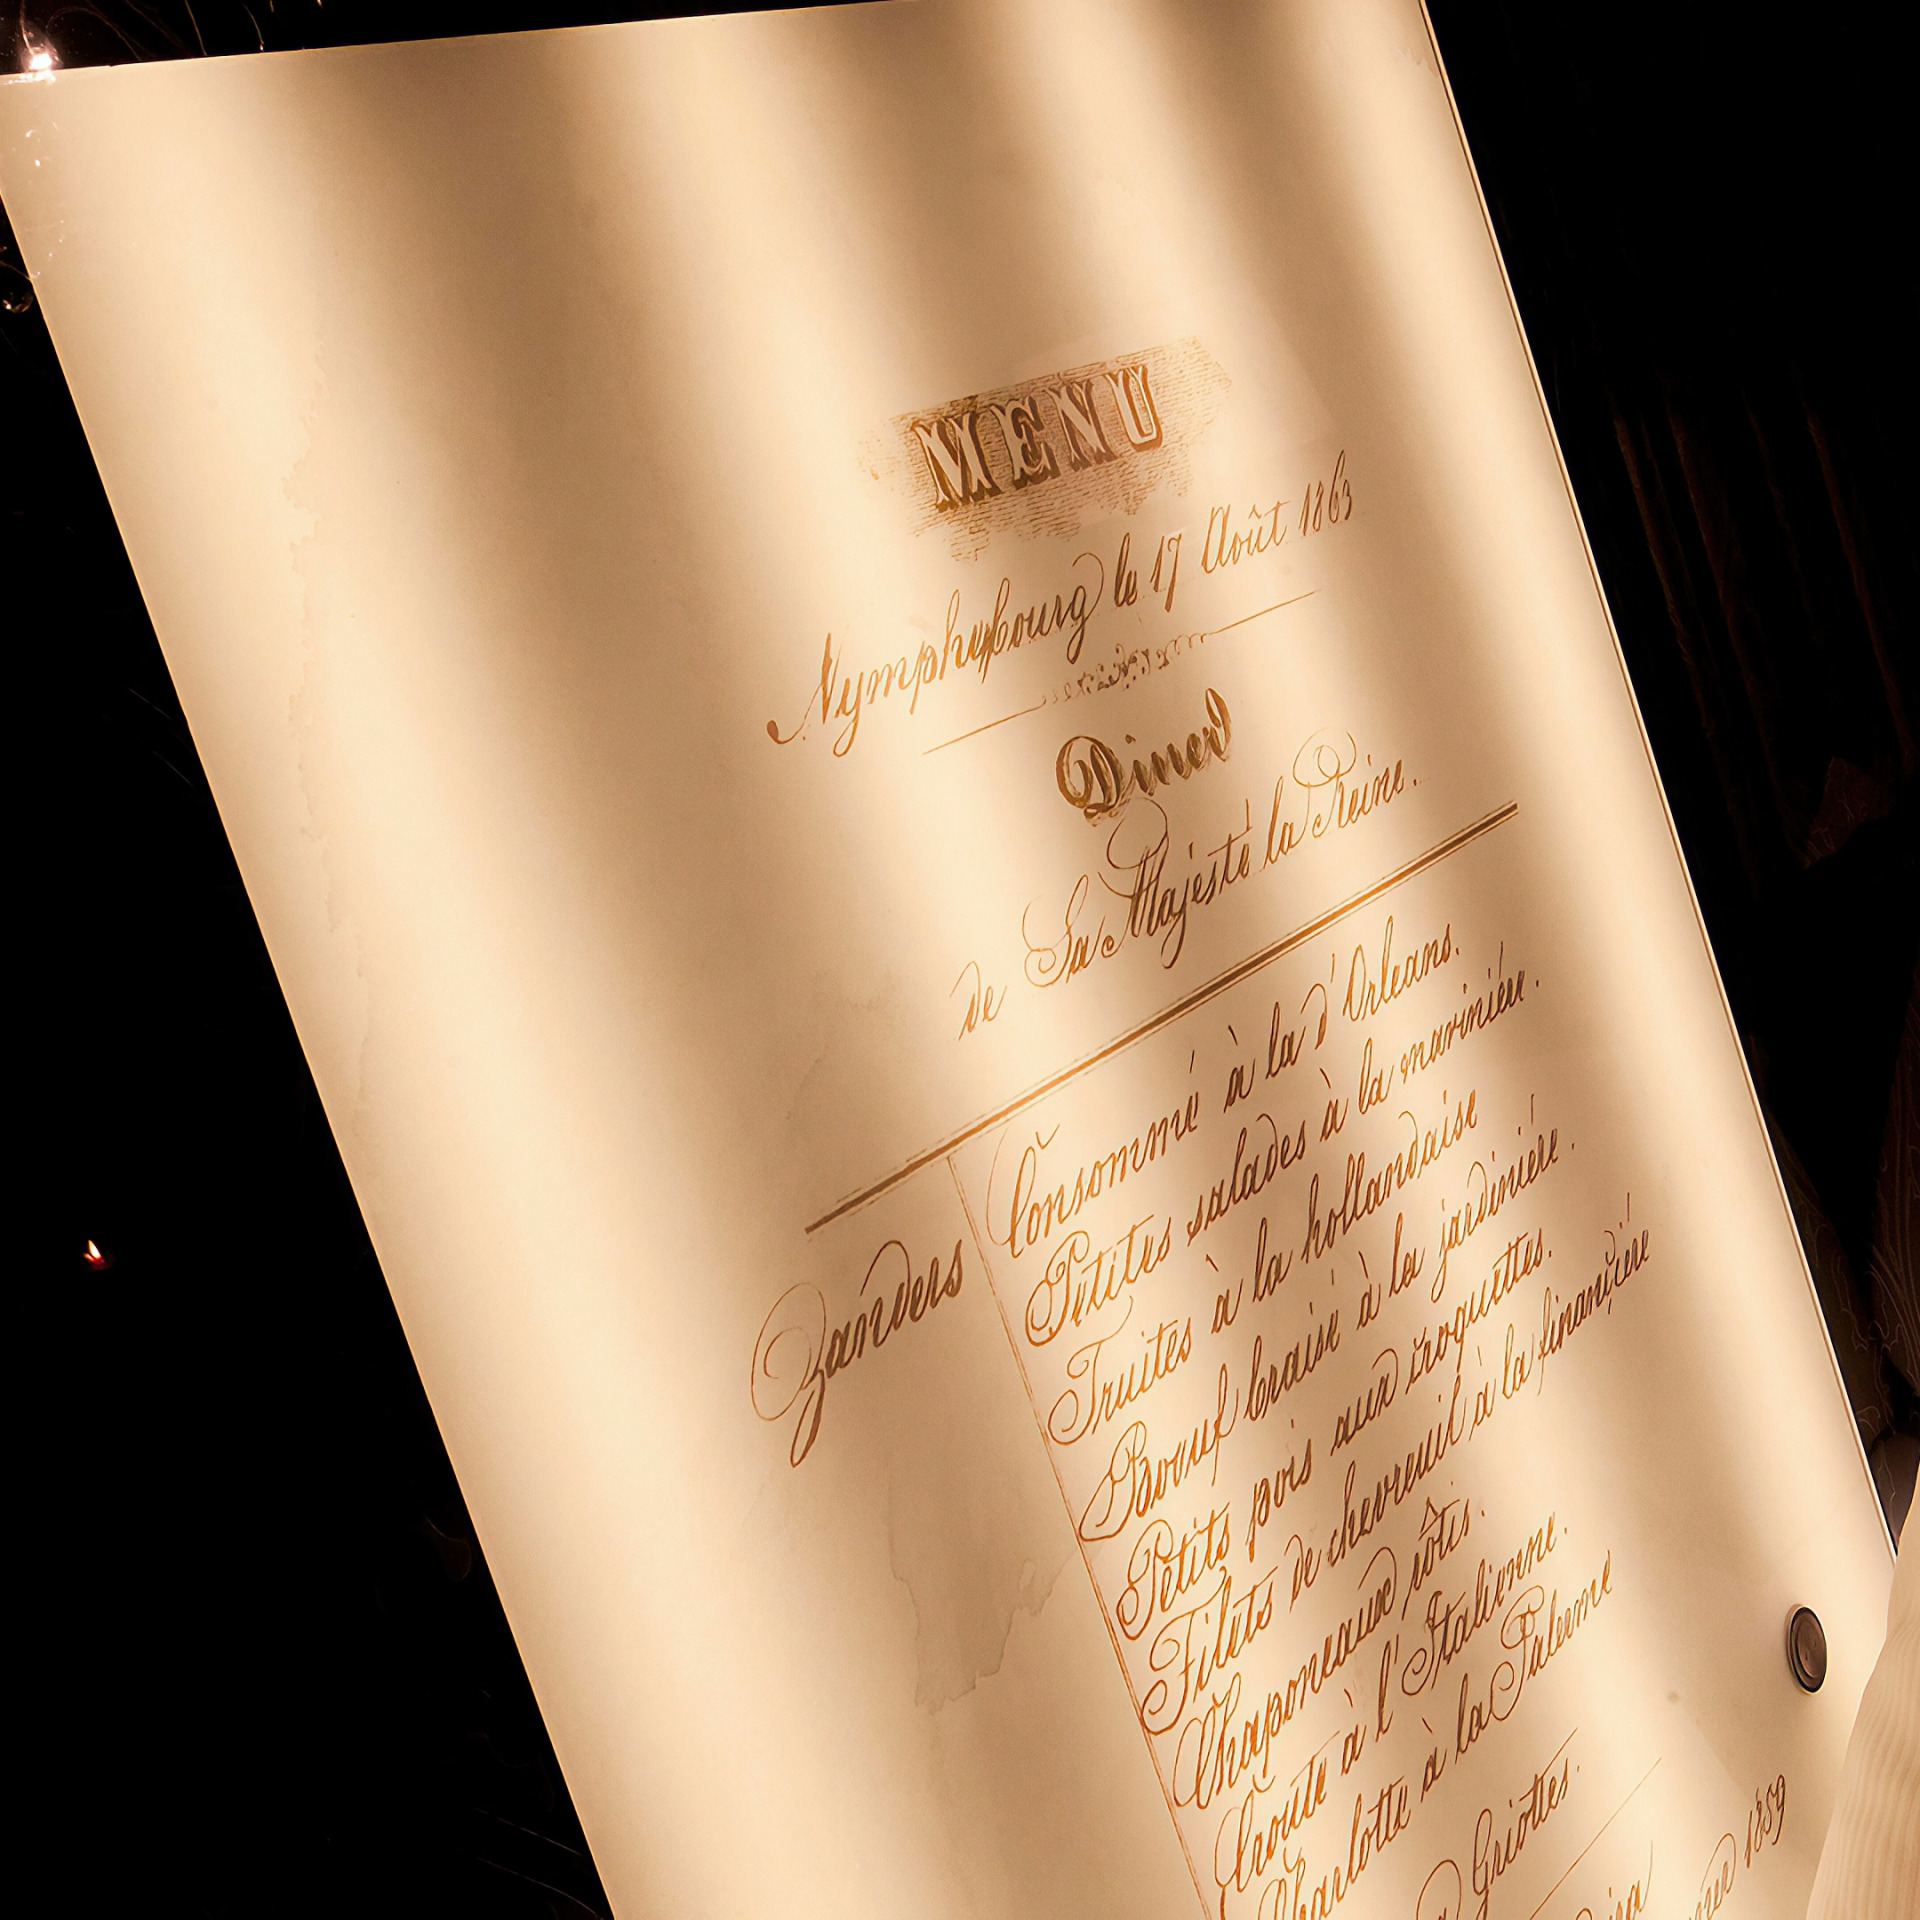 MENU
Nymphebourg le 17 Août 1863
Diner
de Sa Majesté la Reine.
Zanders
Consommé à la d'Orleans.
Petites salades à la mariniére.
Truites à la hollandaise
Boeuf braisé à la jardiniére.
Petits pois aux croquettes.
Filets de chevreuil à la financiére
Chaponeaux rôtis.
Croute à l'Italienne.
Charlotte à la Palerme
Griottes.
1859